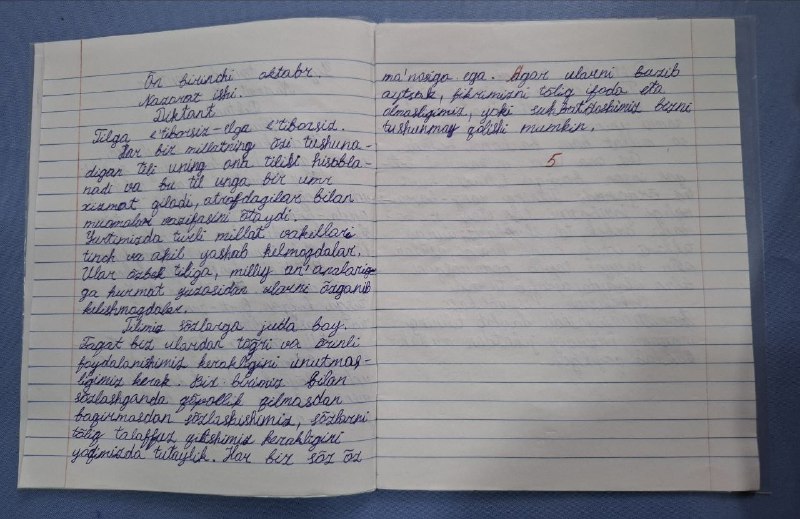 On birinchi oktabr.
Nazorat ishi.
Diktant
Tilga e'tiborsiz-elga e'tiborsiz.
Har bir millatning özi tushuna-
digan tili uning ona tilisi hisobla-
nadi va bu til unga bir umr
xizmat qiladi, atrofdagilar bilan
muomalar vazifasini ötaydi.
Yurtimizda turli millat vakillari
tinch va axil yashab kelmoqdalar.
Ular özbek tiliga, milliy an'analarig-
ga hurmat yuzasidan ularni örganib
kelishmoqdalar.
Tilimiz sözlarga juda boy.
Faqat biz ulardan töğri va örinli
foydalanishimiz kerakligini unutmas-
ligimiz kerak. Bir birimiz bilan
sözlashganda göpollik qilmasdan
baqirmasdan sözlashishimiz, sözlarni
töliq talaffuz qilishimiz kerakligini
yodimizda tutaylik. Har bir söz öz
ma'nosiga ega. Agar ularni buzib
aytsak, fikrimizni töliq ifoda eta
olmasligimiz, yoki suhbatdoshimiz bizni
tushunmay qolishi mumkin.
5